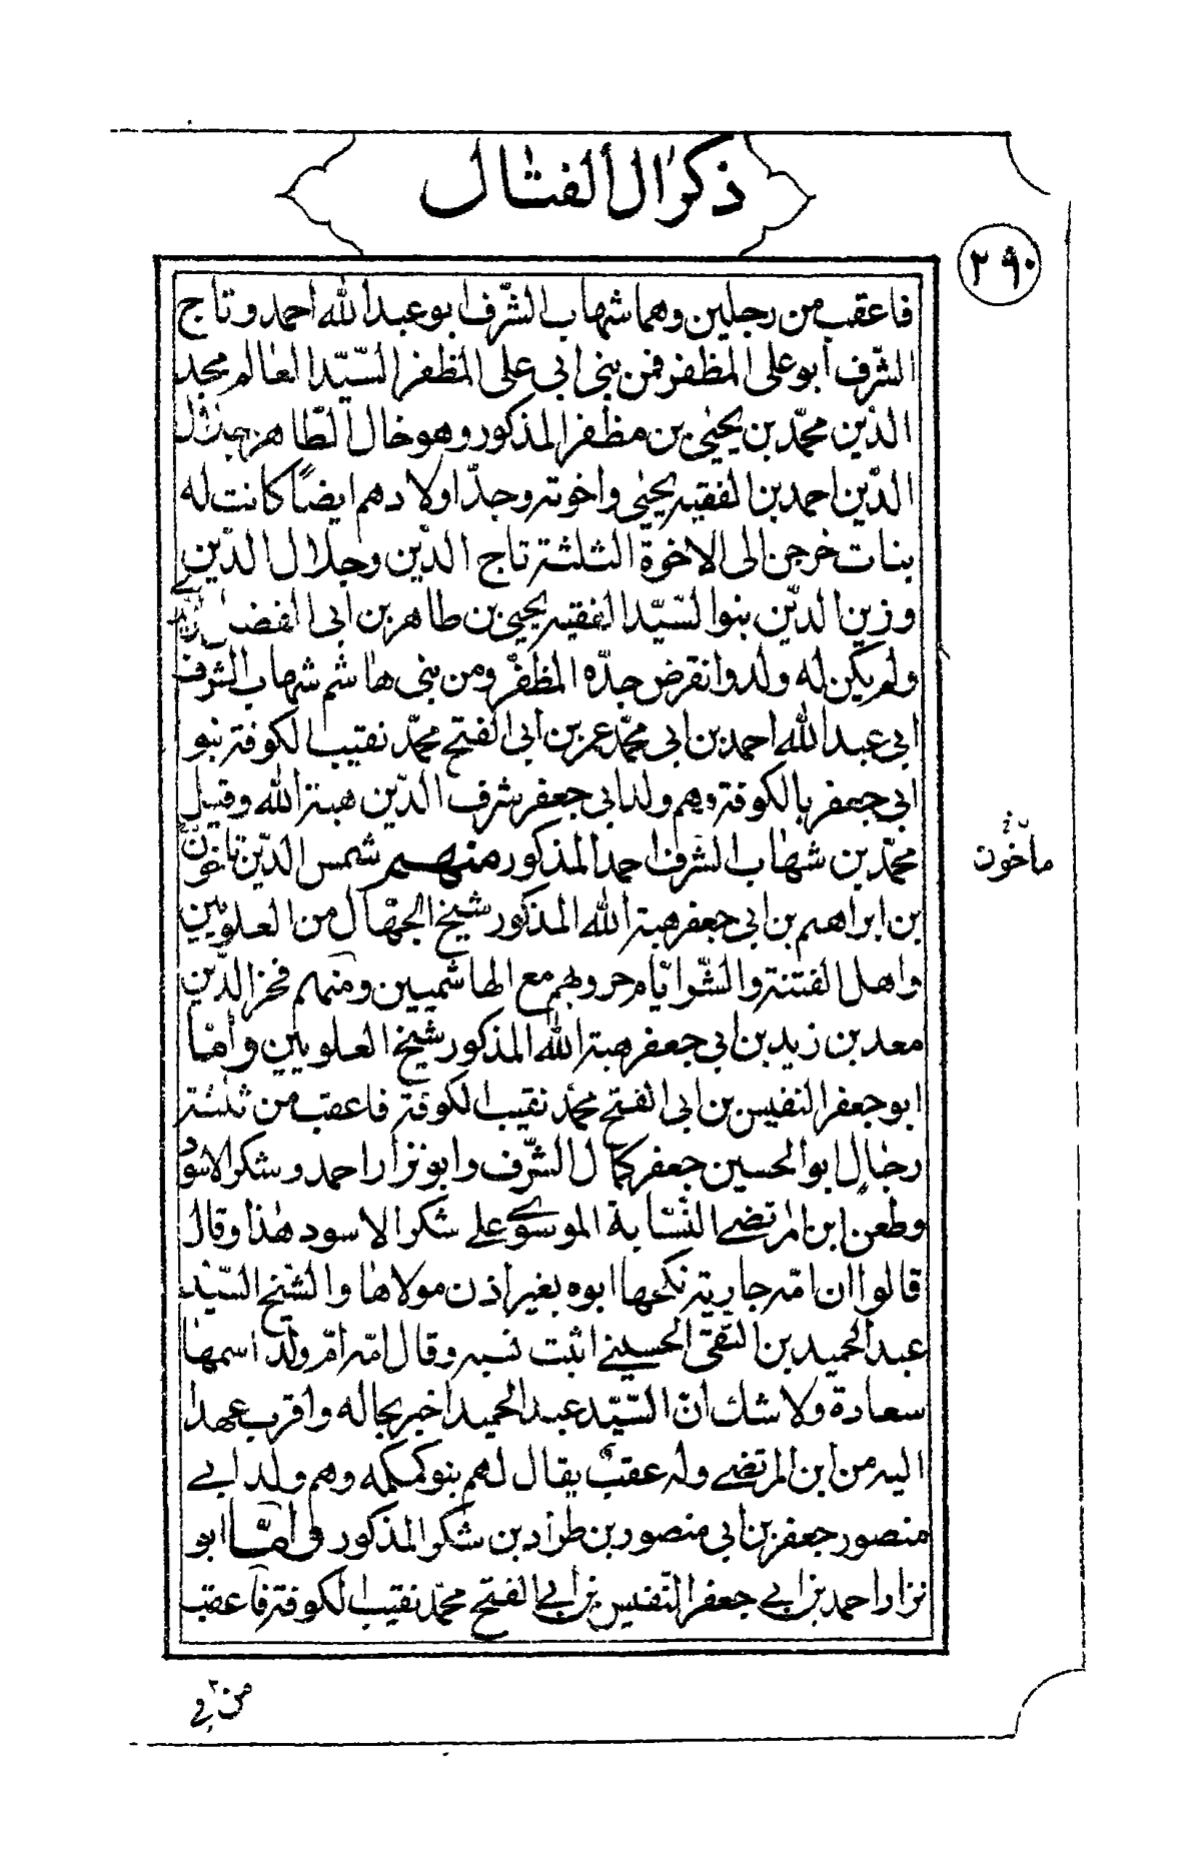 ذكر ال الفتال
٢٩٠
فاعقب من رجلين وهما شهاب الشرف ابو عبد الله احمد وتاج
الشرف أبو على المظفر فمن بنى ابى على المظفر السّيّد العالم مجد
الدّين محمّد بن يحيى بن مظفر المذكور وهو خال الطّاهر جلال
الدّين احمد بن الفقيه يحيى واخوته وجدّ اولادهم ايضاً كانت له
بنات خرجن الى الاخوة الثلثة تاج الدّين وجلال الدّين
وزين الدّين بنو السّيّد الفقيه يحيى بن طاهر بن ابى الفضل
ولم يكن له ولد وانقرض جدّه المظفر ومن بنى هاشم شهاب الشرف
ابى عبد الله احمد بن ابى محمّد عمر بن ابى الفتح محمّد نقيب الكوفة بنو
ابى جعفر بالكوفة وهم ولد ابى جعفر شرف الدّين هبة الله وقيل
محمّد بن شهاب الشرف احمد المذكور منهم شمس الدّين تاخون
بن ابراهيم بن ابى جعفر هبة الله المذكور شيخ الجهال من العلويين
واهل الفتنة والشّر ايّام حروبهم مع الهاشميين ومنهم فخر الدّين
معد بن زيد بن ابى جعفر هبة الله المذكور شيخ العلويين وأمّا
ابو جعفر النفيس بن ابى الفتح محمّد نقيب الكوفة فاعقب من ثلثة
رجال ابو الحسين جعفر كمال الشّرف وابو نزار احمد وشكر الاسود
وطعن ابن المرتضى النّسّابة الموسوي على شكر الاسود هذا وقال
قالوا ان امّه جارية نكحها ابوه بغير اذن مولاها والشّيخ السّيّد
عبد الحميد بن التقى الحسيني اثبت نسبه وقال امّه امّ ولد اسمها
سعادة ولا شك انّ السّيّد عبد الحميد اخبر بحاله واقرب عهدا
اليه من ابن المرتضى وله عقب يقال لهم بنو كمكمه وهم ولد ابي
منصور جعفر بن ابى منصور بن طراد بن شكر المذكور وأمّا ابو
نزار احمد بن ابي جعفر النّفيس بن ابي الفتح محمّد نقيب الكوفة فاعقب
ماخون
من